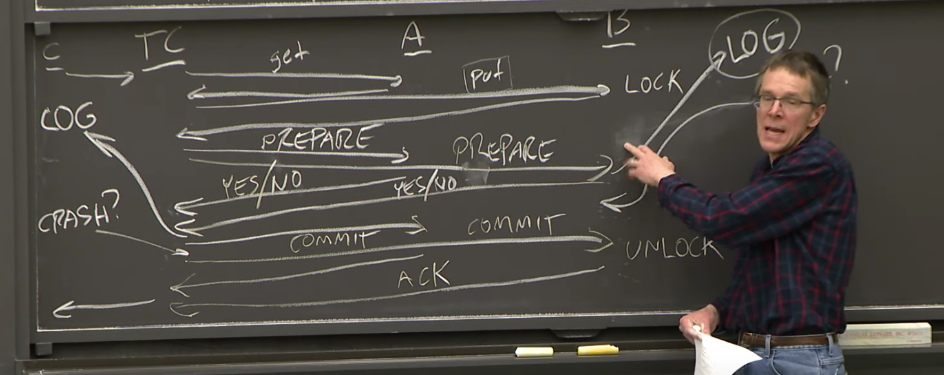 C TC A B LOG ?
get put LOCK
LOG
PREPARE PREPARE
YES/NO YES/NO
CRASH?
COMMIT COMMIT UNLOCK
ACK